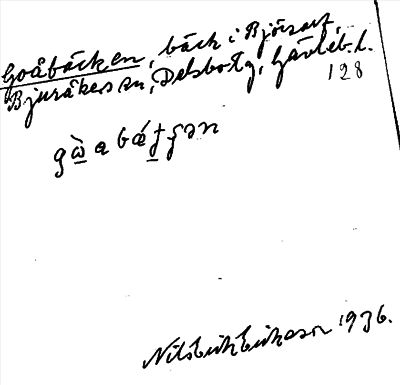 Goåbäcken, bäck i Björsarv,
Bjuråkers sn, Delsbo tg, Gävleb. l.
128
gὼ a bǽʈʃən
Nils Erik Eriksson 1936.